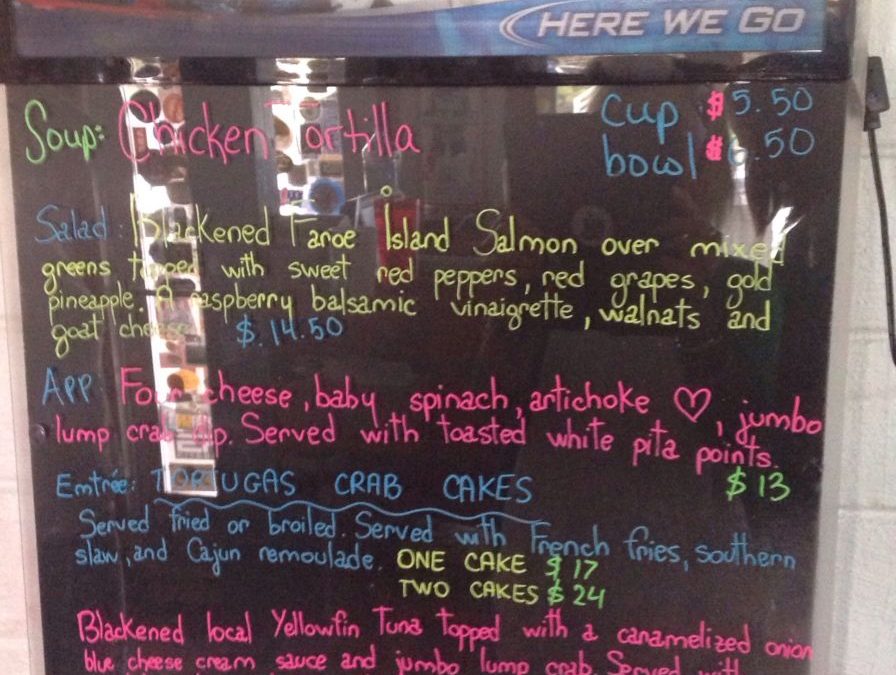 HERE WE GO
Soup: Chicken Tortilla
Cup $5.50
bowl $6.50
Salad: Blackened Faroe Island Salmon over mixed
greens topped with sweet red peppers, red grapes, gold
pineapple. A raspberry balsamic vinaigrette, walnats and
goat cheese $.14.50
App: Four cheese, baby spinach, artichoke ♡, jumbo
lump crab dip. Served with toasted white pita points.
$13
Emtrée: TORTUGAS CRAB CAKES
Served fried or broiled. Served with French fries, southern
slaw, and Cajun remoulade. ONE CAKE $17
TWO CAKES $24
Blackened local Yellowfin Tuna topped with a caramelized onion
blue cheese cream sauce and jumbo lump crab. Served with